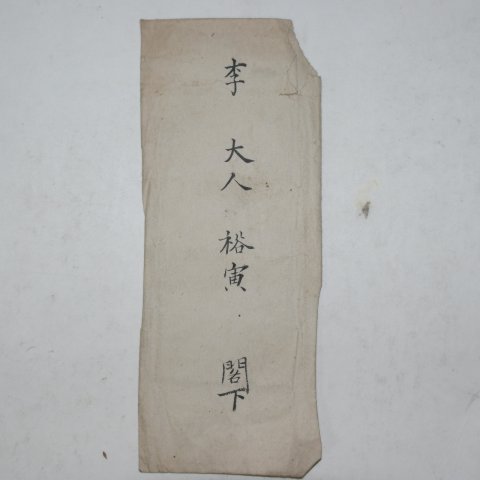 李 大人 裕寅 閣下